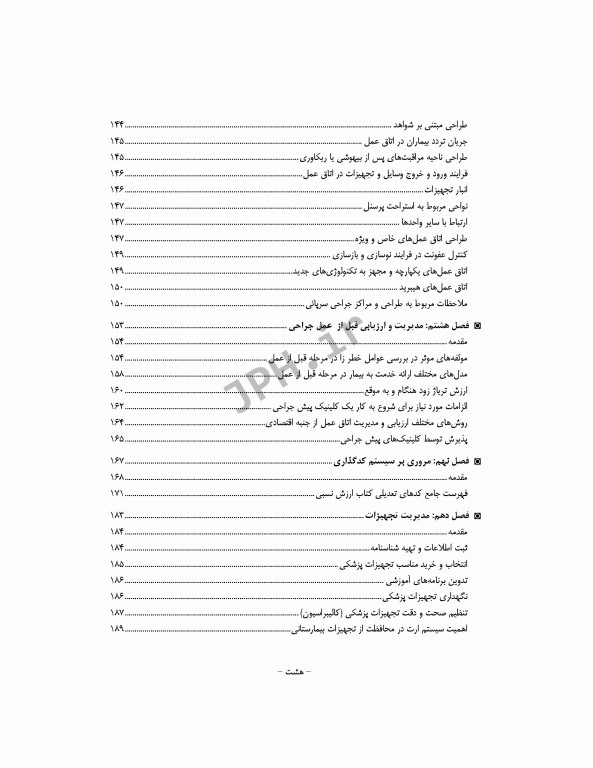 طراحی مبتنی بر شواهد ........ ۱۴۴
جریان تردد بیماران در اتاق عمل ........ ۱۴۵
طراحی ناحیه مراقبت‌های پس از بیهوشی یا ریکاوری ........ ۱۴۵
فرایند ورود و خروج وسایل و تجهیزات در اتاق عمل ........ ۱۴۶
انبار تجهیزات ........ ۱۴۶
نواحی مربوط به استراحت پرسنل ........ ۱۴۷
ارتباط با سایر واحدها ........ ۱۴۷
طراحی اتاق عمل‌های خاص و ویژه ........ ۱۴۷
کنترل عفونت در فرایند نوسازی و بازسازی ........ ۱۴۹
اتاق عمل‌های یکپارچه و مجهز به تکنولوژی‌های جدید ........ ۱۴۹
اتاق عمل‌های هیبرید ........ ۱۵۰
ملاحظات مربوط به طراحی و مراکز جراحی سرپائی ........ ۱۵۰
◙ فصل هشتم: مدیریت و ارزیابی قبل از عمل جراحی ........ ۱۵۳
مقدمه ........ ۱۵۴
مولفه‌های موثر در بررسی عوامل خطر زا در مرحله قبل از عمل ........ ۱۵۴
مدل‌های مختلف ارائه خدمت به بیمار در مرحله قبل از عمل ........ ۱۵۸
ارزش تریاژ زود هنگام و به موقع ........ ۱۶۰
الزامات مورد نیاز برای شروع به کار یک کلینیک پیش جراحی ........ ۱۶۲
روش‌های مختلف ارزیابی و مدیریت اتاق عمل از جنبه اقتصادی ........ ۱۶۴
پذیرش توسط کلینیک‌های پیش جراحی ........ ۱۶۵
◙ فصل نهم: مروری بر سیستم کدگذاری ........ ۱۶۷
مقدمه ........ ۱۶۸
فهرست جامع کدهای تعدیلی کتاب ارزش نسبی ........ ۱۷۱
◙ فصل دهم: مدیریت تجهیزات ........ ۱۸۳
مقدمه ........ ۱۸۴
ثبت اطلاعات و تهیه شناسنامه ........ ۱۸۴
انتخاب و خرید مناسب تجهیزات پزشکی ........ ۱۸۵
تدوین برنامه‌های آموزشی ........ ۱۸۶
نگهداری تجهیزات پزشکی ........ ۱۸۶
تنظیم صحت و دقت تجهیزات پزشکی (کالیبراسیون) ........ ۱۸۷
اهمیت سیستم ارت در محافظت از تجهیزات بیمارستانی ........ ۱۸۹
- هشت -
JPH.ir